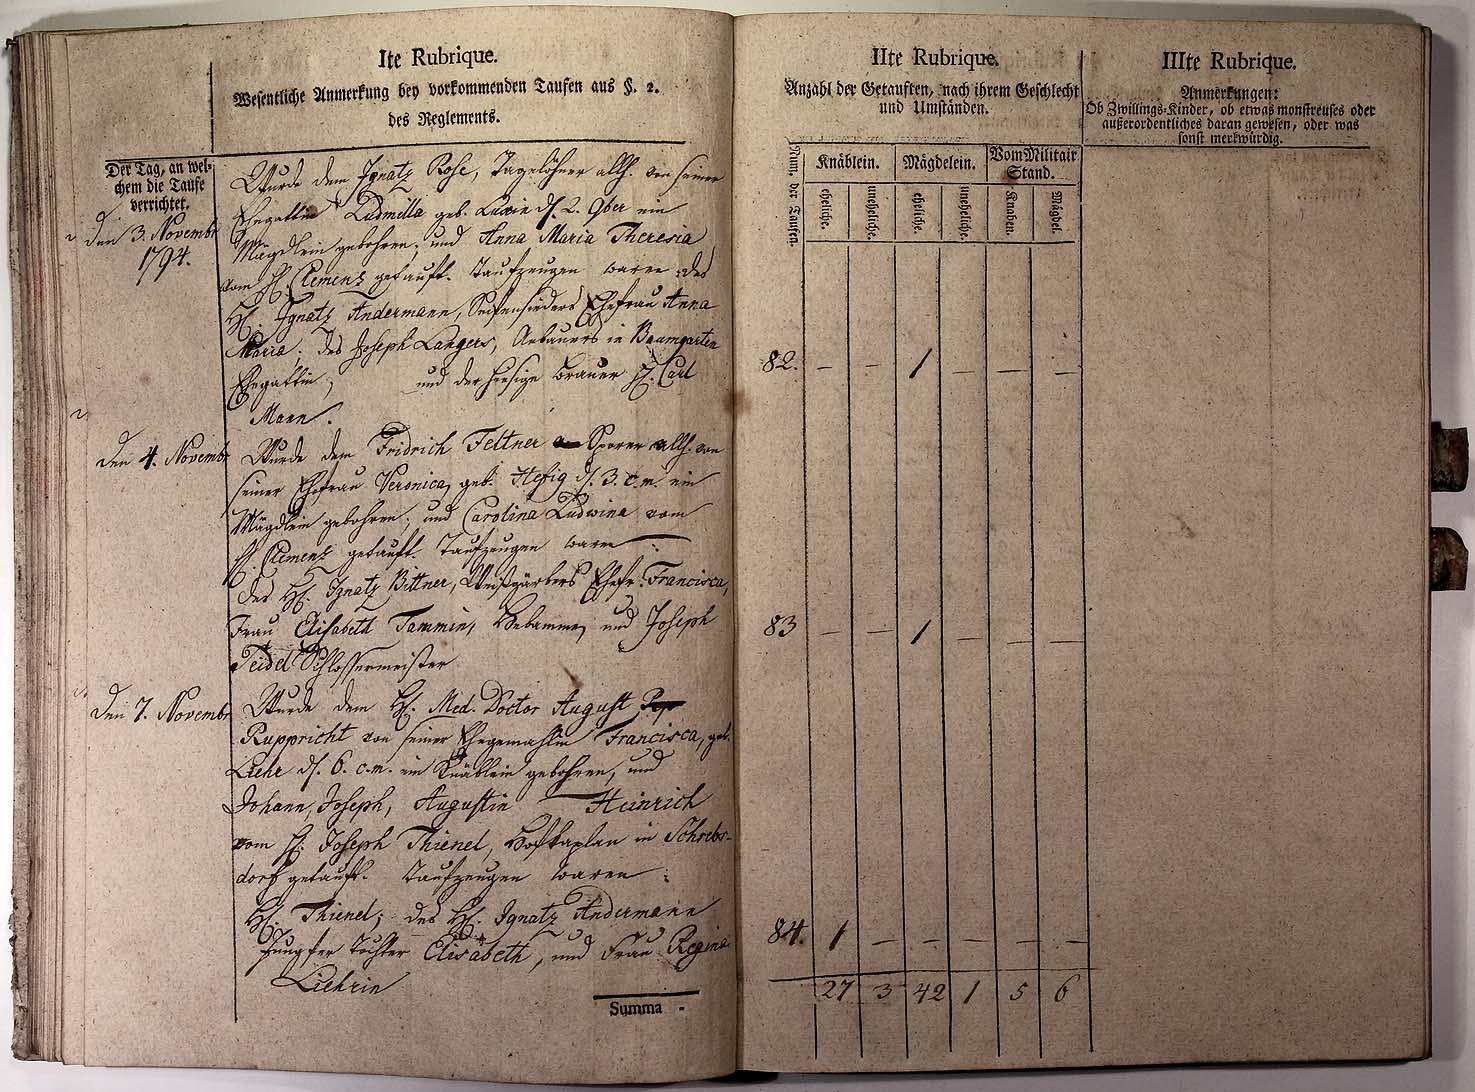 Ite Rubrique.
Wesentliche Anmerkung bey vorkommenden Taufen aus §. 2.
des Reglements.
Der Tag, an wel-
chem die Taufe
verrichtet.
den 3. Novembr
1794.
Wurde dem Ignatz Rose, Tagelöhner allh. von seiner
Ehegattin Ludmilla geb. Luxin d. 2. 9ber ein
Mägdlein gebohren; und Anna Maria Theresia
vom H. Clemenz getauft. Taufzeugen waren: des
H. Ignatz Andermann, Seifensieders Ehefrau Anna
Maria; des Joseph Langers, Anbauers in Baumgarten
Ehegattin; und der hiesige Brauer H. Carl
Mann.
den 4. Novembr
Wurde dem Fridrich Feltner Sporer allh. von
seiner Ehefrau Veronica, geb. Hefig d. 3. c.m. ein
Mägdlein gebohren; und Carolina Ludwina vom
H. Clemenz getauft. Taufzeugen waren:
des H. Ignatz Bittner, Weißgärbers Ehefr. Francisca,
Frau Elisabeth Tammin, Hebamme, und Joseph
Teidel Schlossermeister
den 7. Novembr
Wurde dem H. Med. Doctor August
Ruppricht von seiner Ehegemahlin Francisca, geb.
Liehr d. 6. c.m. ein Knäblein gebohren, und
Johann, Joseph, Augustin Heinrich
vom H. Joseph Thienel, Hofkaplan in Schrebs-
dorf getauft. Taufzeugen waren:
H. Thienel; des H. Ignatz Andermann
Jungfer Tochter Elisabeth, und Frau Regina
Liehrin
Summa -
IIte Rubrique.
Anzahl der Getauften, nach ihrem Geschlecht
und Umständen.
Num. der Taufen.
Knäblein.
Mägdelein.
Vom Militair
Stand.
eheliche.
uneheliche.
eheliche.
uneheliche.
Knaben.
Mägdel.
82. – – 1 – – –
83 – – 1 – – –
84. 1 – – – – –
27 3 42 1 5 6
IIIte Rubrique.
Anmerkungen:
Ob Zwillings-Kinder, ob etwas monstreuses oder
außerordentliches daran gewesen, oder was
sonst merkwürdig.